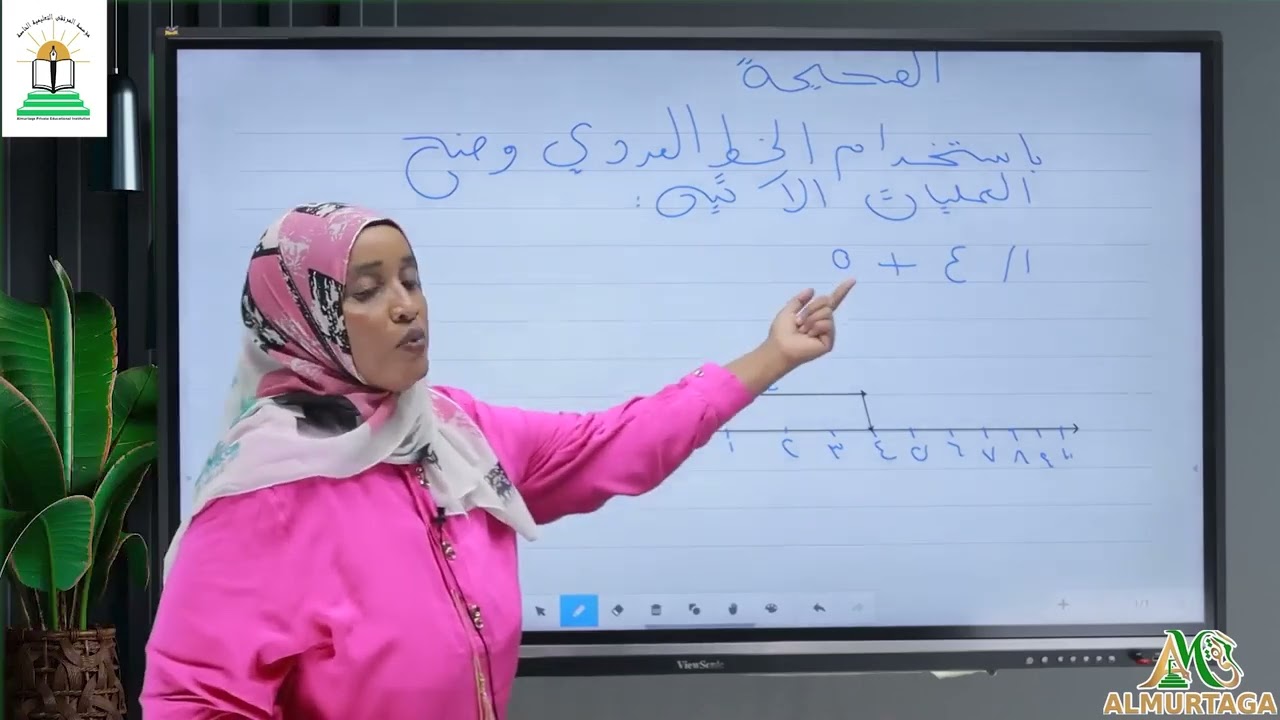 مؤسسة المرتقى التعليمية الخاصة
Almurtaga Private Educational Institution
الصحيحة
باستخدام الخط العددي وضح
العمليات الآتية :
١/ ٤ + ٥
١ ٢ ٣ ٤ ٥ ٦ ٧ ٨ ٩ ١٠
1/1
ViewSonic
ALMURTAGA